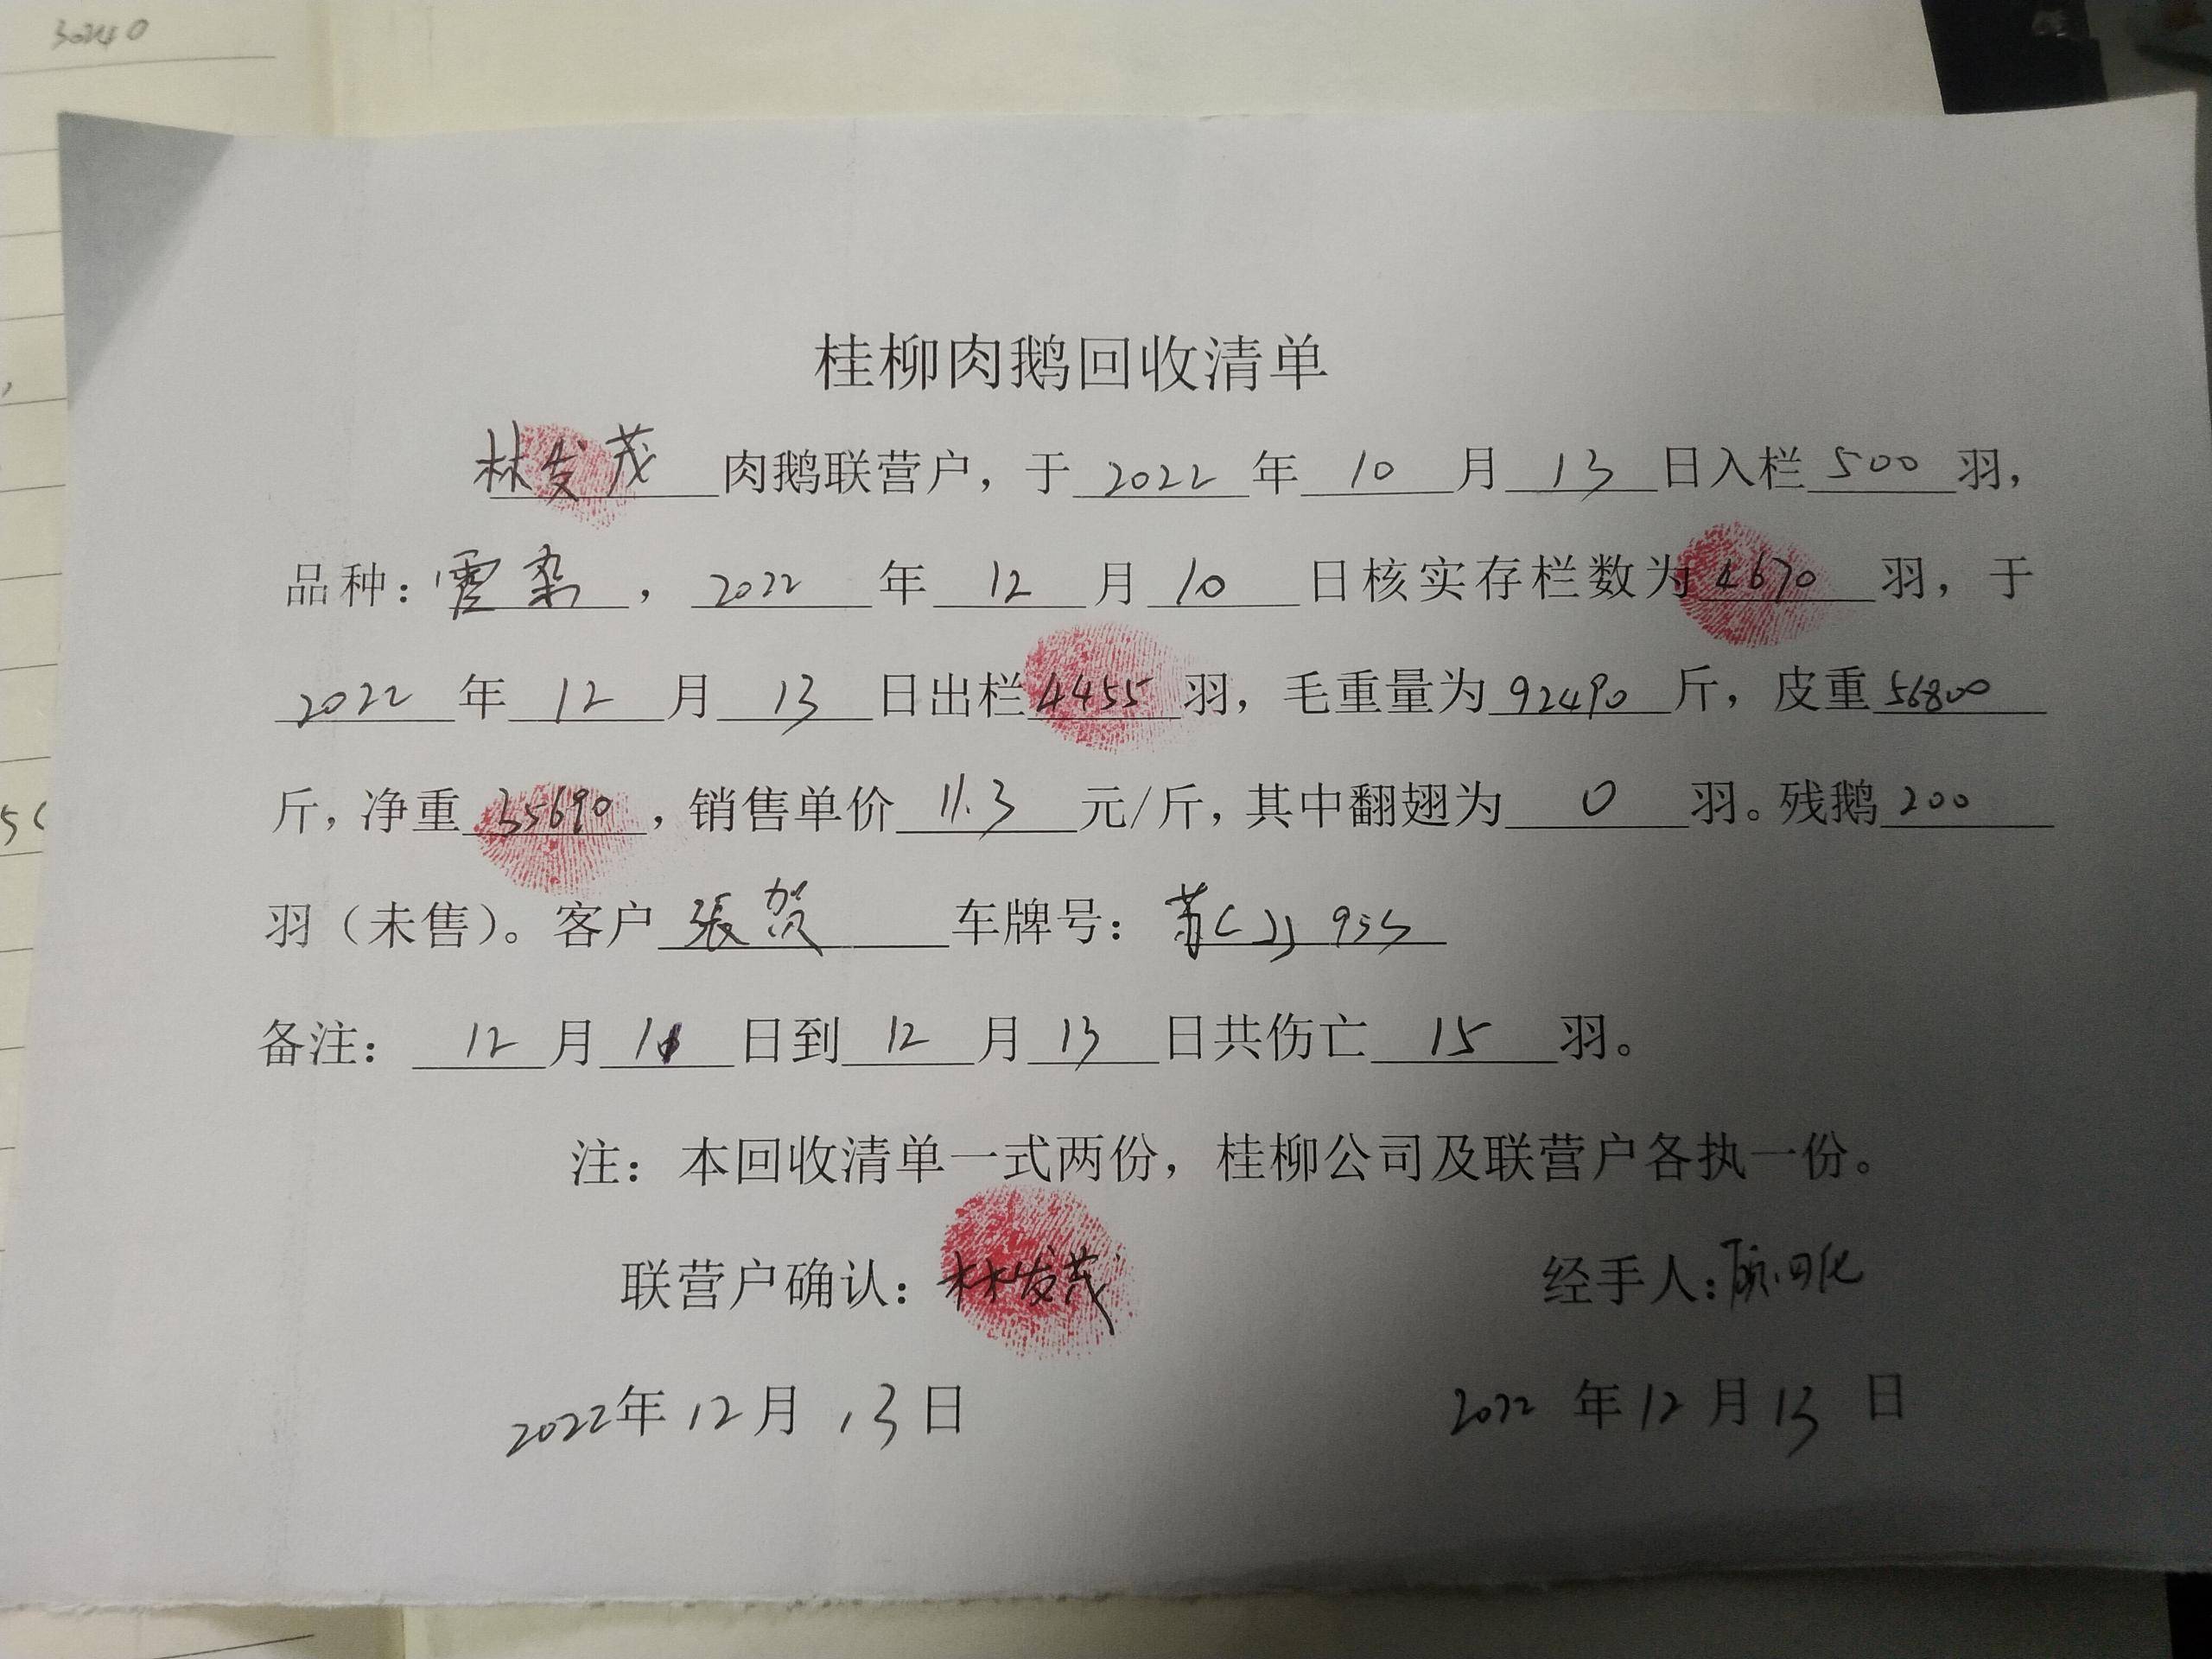 30240
桂柳肉鹅回收清单
林发茂 肉鹅联营户，于 2022 年 10 月 13 日入栏 500 羽，
品种： 杂，2022 年 12 月 10 日核实存栏数为 4670 羽，于
2022 年 12 月 13 日出栏 4455 羽，毛重量为 92490 斤，皮重 56800
斤，净重 35690，销售单价 11.3 元/斤，其中翻翅为 0 羽。残鹅 200
羽（未售）。客户 張贺 车牌号： 苏CJJ955
备注： 12 月 11 日到 12 月 13 日共伤亡 15 羽。
注：本回收清单一式两份，桂柳公司及联营户各执一份。
联营户确认：林发茂 经手人：
2022年12月13日 2022年12月13日